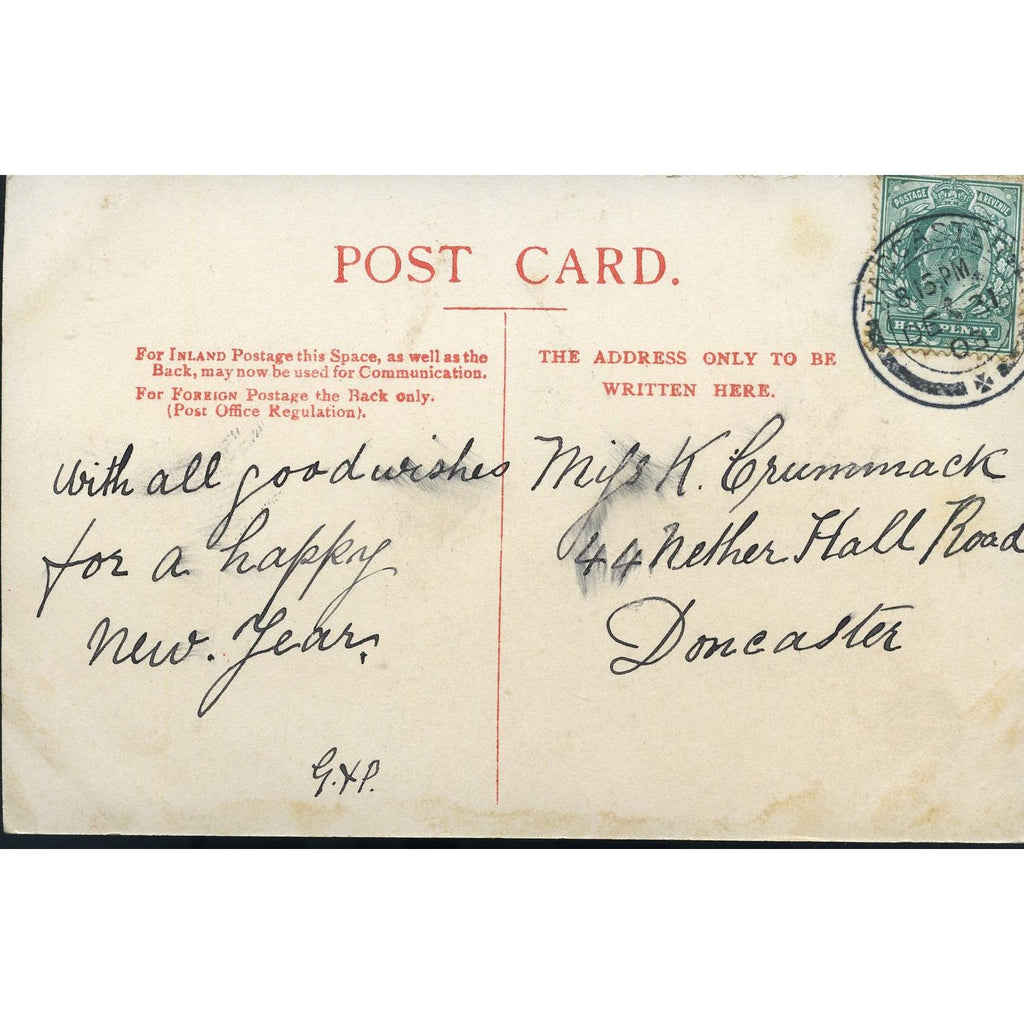 POST CARD.
For INLAND Postage this Space, as well as the
Back, may now be used for Communication.
For FOREIGN Postage the Back only.
(Post Office Regulation).
THE ADDRESS ONLY TO BE
WRITTEN HERE.
POSTAGE & REVENUE
HALFPENNY
TADCASTER
8 15 PM
DE 31
With all good wishes
for a happy
New. Year.
G.&P.
Miss K. Crummack
44 Nether Hall Road
Doncaster